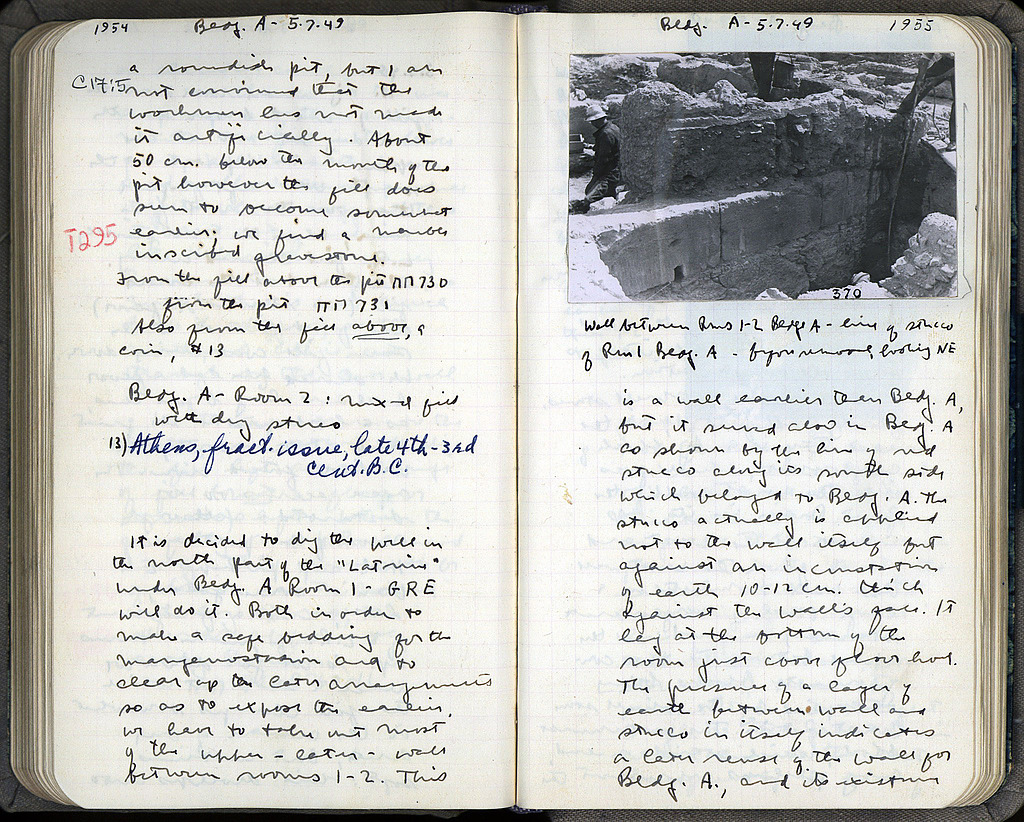 1954
Bldg. A - 5.7.49
a roundish pit, but I am
C17:5
not convinced that the
workman has not made
it artificially. About
50 cm. below the mouth of the
pit however the fill does
seem to become somewhat
earlier. We find a
T295
inscribed gravestone.
From the fill above the pit ΠΠ 730
from the pit ΠΠ 731
Also from the fill above, a
coin, #13
Bldg. A - Room 2: mixed fill
with dug stereo
13) Athens, fract. issue, late 4th-3rd
cent. B.C.
It is decided to dig the well in
the north part of the "Latrine"
under Bldg. A Room 1 - GRE
will do it. Both in order to
make a safe bedding for the
and to
clear up the later arrangements
so as to expose the earlier,
we have to take out most
of the upper - later - wall
between rooms 1-2. This
Bldg. A - 5.7.49
1955
370
Wall between Rms 1-2 Bldg A - line of stucco
of Rm 1 Bldg. A - before removal looking NE
is a wall earlier than Bldg. A,
but it served also in Bldg. A
as shown by the line of red
stucco along its south side
which belonged to Bldg. A. The
stucco actually is applied
not to the wall itself but
against an incrustation
of earth 10-12 cm. thick
against the wall's face. It
lay at the bottom of the
room just above floor level.
The presence of a layer of
earth between wall and
stucco in itself indicates
a later reuse of the wall for
Bldg. A., and its existence